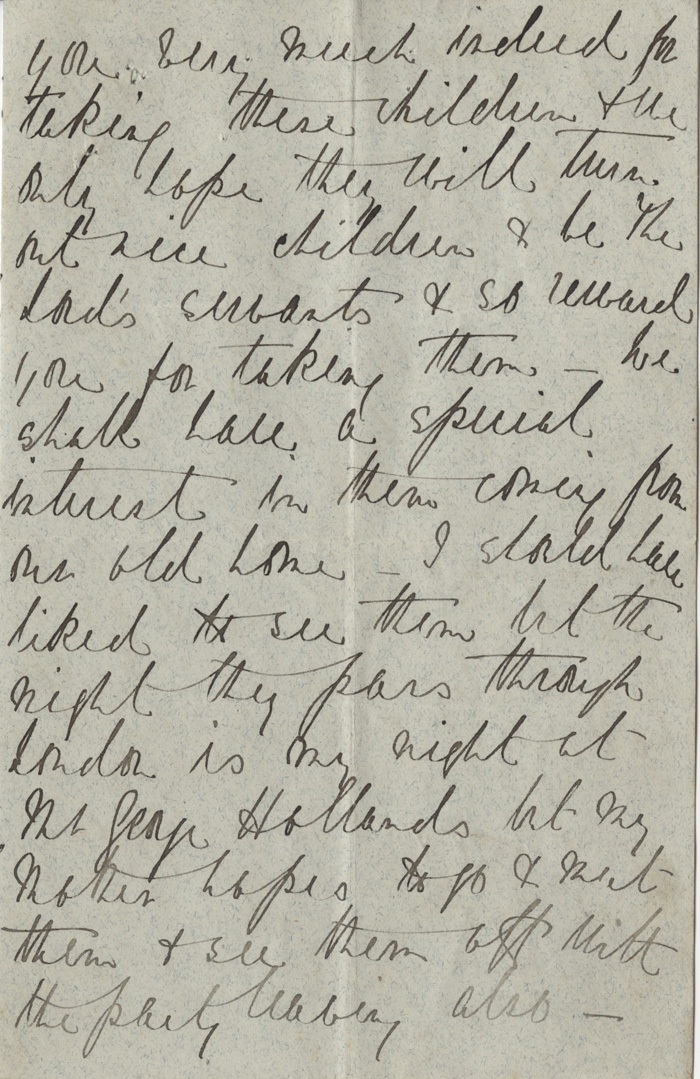 you very much indeed for
taking these children & we
only hope they will turn
out nice children & be the
Lord's servants & so reward
you for taking them — We
shall have a special
interest in them coming from
our old home — I should have
liked to see them but the
night they pass through
London is my night at
Mr George Hollands but my
Mother hopes to go & meet
them & see them off with
the party leaving also —